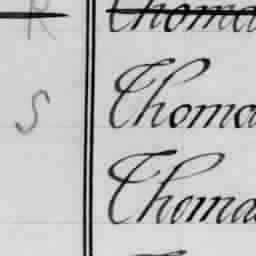 R Thoma
S Thoma
Thoma